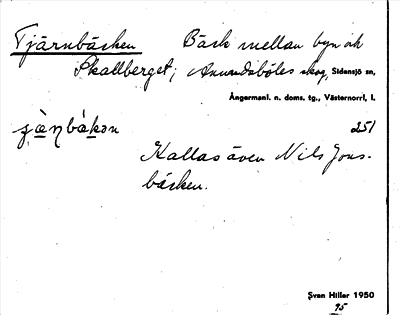 Tjärnbäcken Bäck mellan byn och
Skallberget; Anundsböles skog, Sidensjö sn,
Ångermanl. n. doms. tg., Västernorrl, l.
251
Kallas även Nils Jons-
bäcken.
Sven Hiller 1950
95